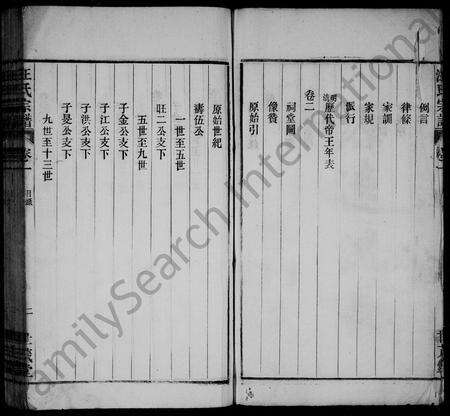 例言
律條
家訓
家規
派行
歷代帝王年表
卷二
祠堂圖
像贊
原始引
原始世紀
濤伍公
一世至五世
旺二公支下
五世至九世
子金公支下
子江公支下
子洪公支下
子旻公支下
九世至十三世
汪氏宗譜
卷一
目錄
二
FamilySearch International